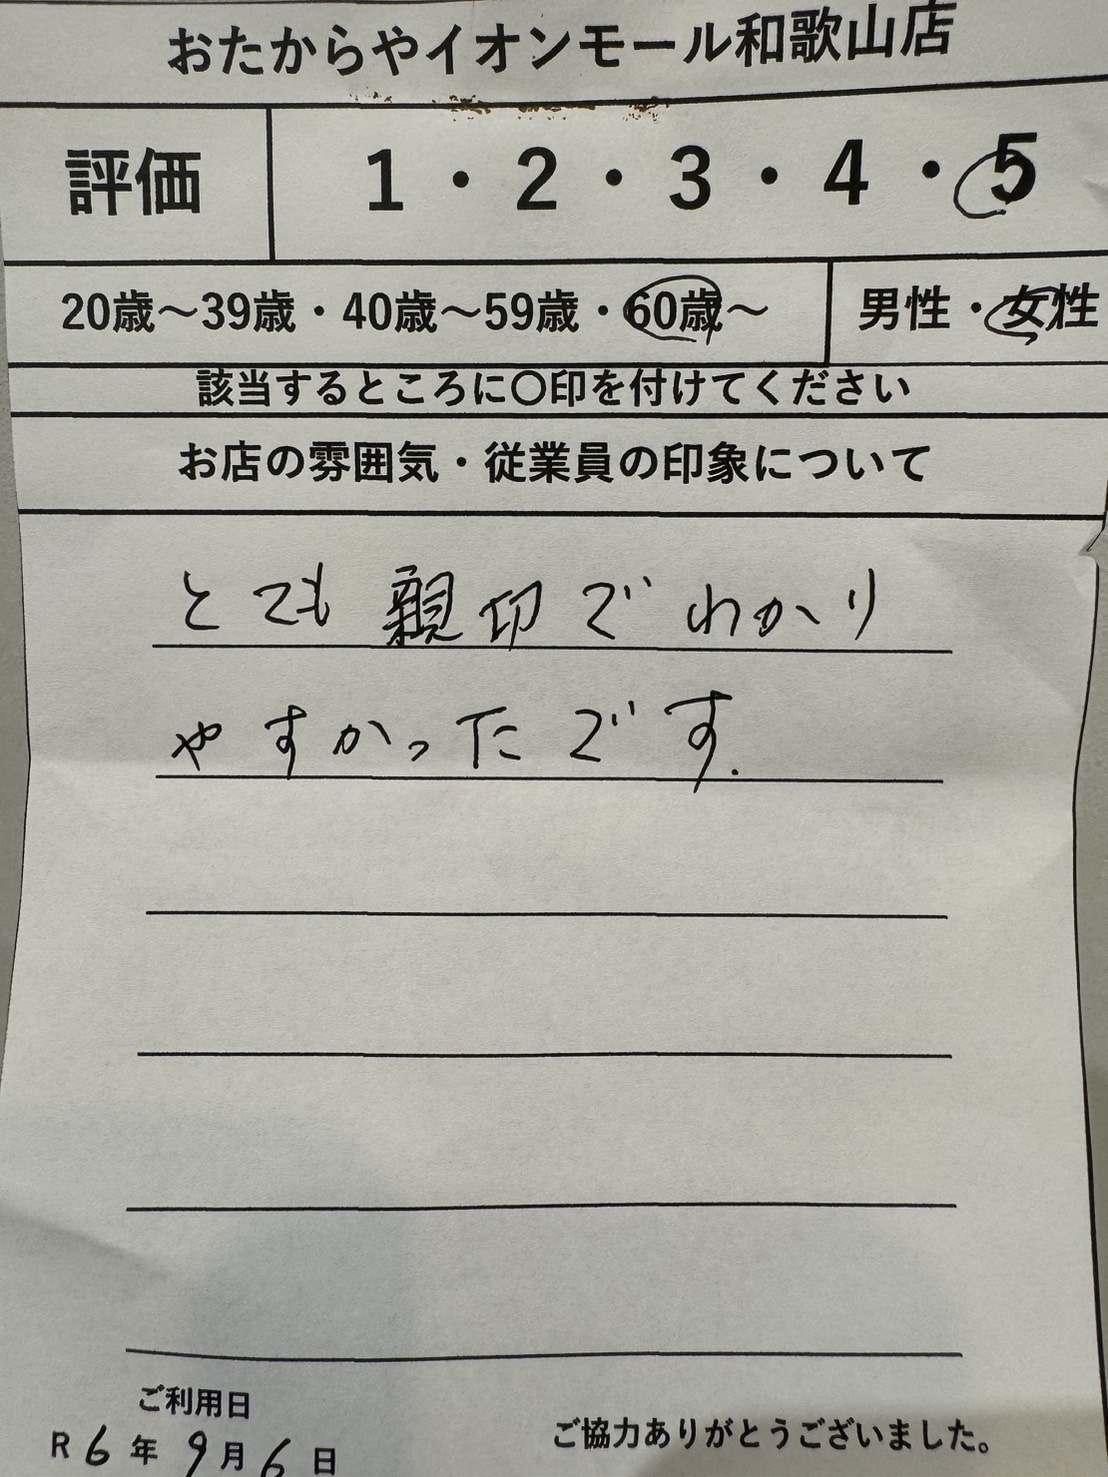 おたからやイオンモール和歌山店
評価
1・2・3・4・5
20歳～39歳・40歳～59歳・60歳～
男性・女性
該当するところに〇印を付けてください
お店の雰囲気・従業員の印象について
とても親切でわかり
やすかったです.
ご利用日
R6年9月6日
ご協力ありがとうございました。